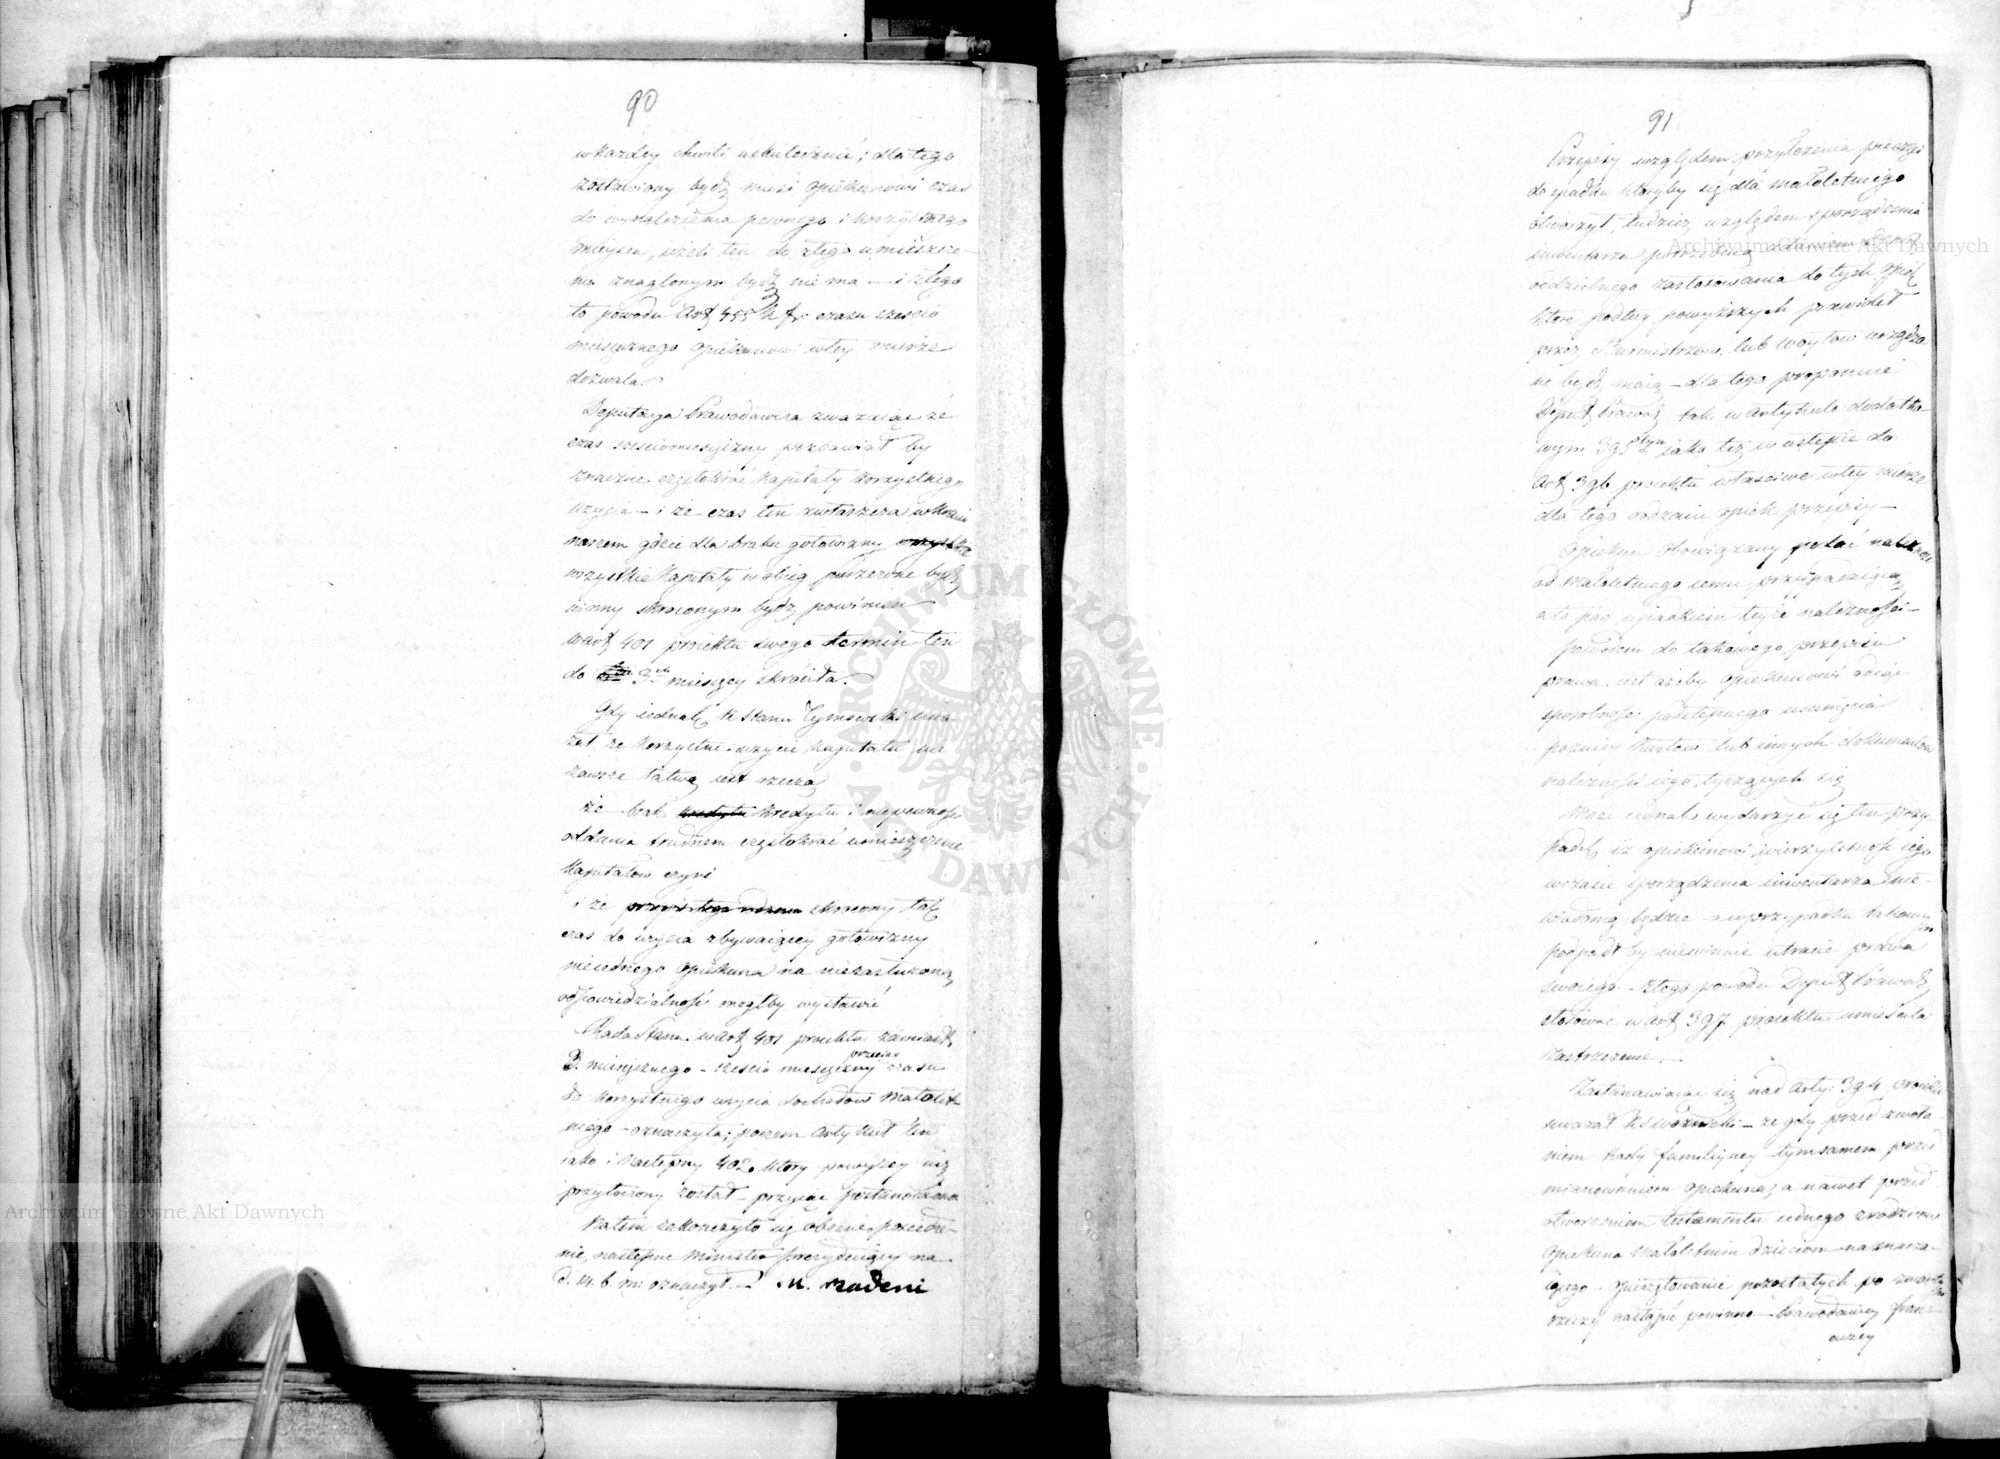 90
w każdey chwili uskutecznić; dla tego
zostawiony bydź musi opiekunowi czas
do wynalezienia pewnego i korzystnego
mieysca, ieżeli ten do złego umieszcze-
nia znaglonym bydź nie ma — i z tego
to powodu Art 455 K fr. czasu sześcio
miesięcznego opiekunowi w tey mierze
dozwala.
Deputacya Prawodawcza zważaiąc że
czas sześciomiesięczny pozbawiał by
znaczne częstokroć kapitały korzystnego
użycia — i że czas ten zwłaszcza w kraiu
naszem gdzie dla braku gotowizny
wszystkie kapitały w obieg puszczone bydź
winny skroconym bydź powinien
w art 401 proiektu swego termin ten
do 3ch miesięcy skróciła.
Gdy iednak R Stanu Tymowski uwa
żał że korzystne użycie kapitału nie
zawsze łatwą iest rzeczą
że brak kredytu kredytu i niepewność
oddania trudnem częstokroć umieszczenie
kapitałów czyni
i że skrocony tak
czas do użycia zbywaiącey gotowizny
nieiednego opiekuna na niezasłużoną
odpowiedzialność mogłby wystawić
Rada Stanu w art 401 proiektu zamiast
3. miesięcznego – sześcio miesięczny przeciąg czasu
do korzystnego użycia dochodów małolet-
niego – oznaczyła; poczem Artykuł ten
iako i następny 402 który powyżey iuż
przytoczony został – przyiąć postanowiono
Na tem zakończyło się obecne posiedze-
nie, następne Minister prezyduiący na
d. 14. b. m: oznaczył. — M. Badeni
91
Przepisy względem przyłożenia pieczęci
do spadku któryby się dla małoletniego
otworzył, tudzież względem sporządzenia
inwentarza potrzebuią
oddzielnego zastosowania do tych opiek
które podług powyższych prawideł
przez Burmistrzów lub woytów urządza-
ne bydź maią – dla tego proponuie
Deput Prawod tak w artykule dodatko-
wym 395 iako też w ustępie do
Art 396 proiektu właściwe w tey mierze
dla tego rodzaiu opiek przepisy —
Opiekun obowiązany podać należność
od małoletniego iemu przypadaiącą
a to pod upadkiem teyże należności —
powodem do takowego przepisu
prawa iest ażeby opiekunowi odiąć
sposobność podstępnego usunięcia
poźniey kwitów lub innych dokumentów
należności iego tyczących się
Może iednak wydarzyć się ten przy
padek iż opiekunowi wierzytelność iego
w czasie sporządzenia inwentarza nie-
wiadomą będzie a w przypadku takowym
podpadł by niewinnie utracie prawa
swoiego – z tego powodu Deput Prawod
stosowne w art 397 proiektu umieściła
zastrzeżenie. —
Zastanawiaiąc się nad arty: 394 proiektu
uważał R S Woźnicki – że gdy przed zwoła
niem Rady familiyney tymsamem przed
mianowaniem opiekuna, a nawet przed
otworzeniem testamentu iednego z rodziców
opiekuna małoletnim dzieciom naznacza-
iącego – opieczętowanie pozostałych po zmarłym
rzeczy nastąpić powinno – Prawodawcy fran-
cuzcy
Archiwum Główne Akt Dawnych
Archiwum Główne Akt Dawnych
ARCHIWUM GŁÓWNE AKT DAWNYCH